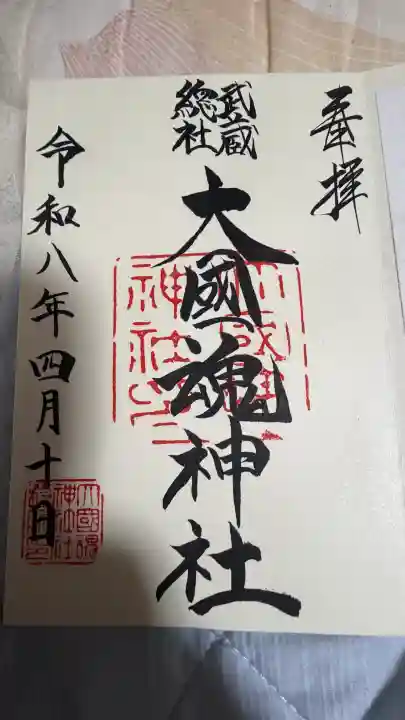 奉拝
武蔵
総社
大國魂神社
令和八年四月十日
大國魂
神社